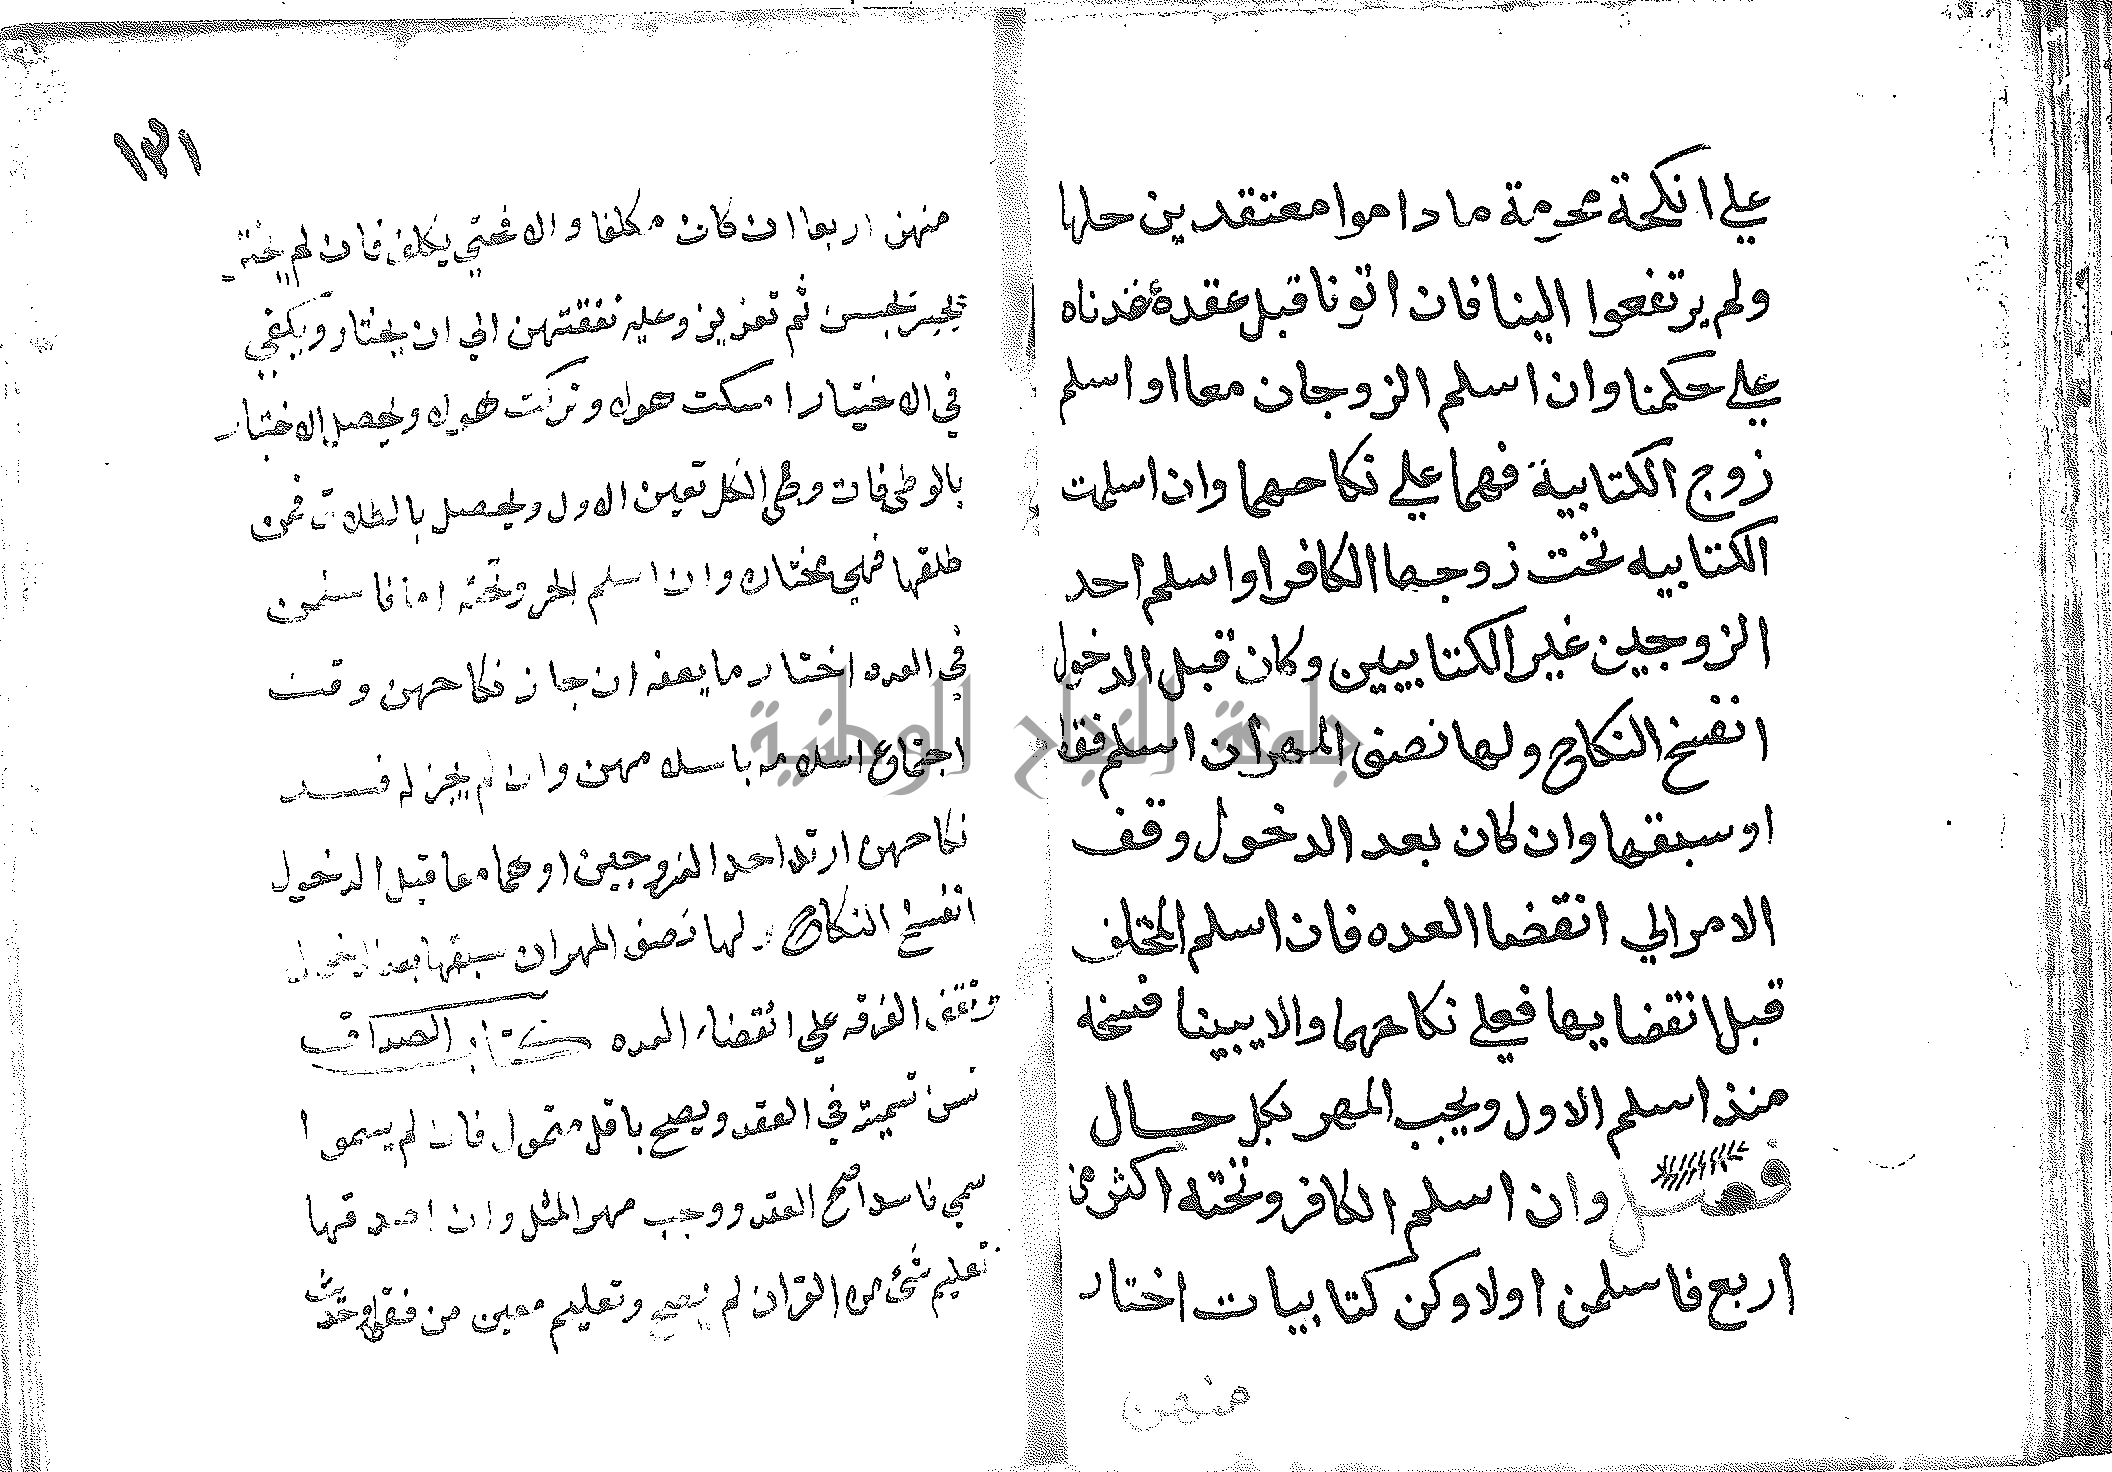 علي انكحة محرمة ما داموا معتقدين حلها
ولم يرتفعوا الينا فان اتونا قبل عقده عقدناه
علي حكمنا وان اسلم الزوجان معا او اسلم
زوج الكتابية فهما علي نكاحهما وان اسلمت
الكتابيه تحت زوجها الكافر او اسلم احد
الزوجين غير الكتابيين وكان قبل الدخول
انفسخ النكاح ولها نصف المهر ان اسلم فقط
او سبقها وان كان بعد الدخول وقف
الامر الي انقضا العده فان اسلم المتخلف
قبل انقضايها فعلي نكاحهما والا يبينا فسخه
منذ اسلم الاول ويجب المهر بكل حال
فصل وان اسلم الكافر وتحته اكثر من
اربع فاسلمن اولا وكن كتابيات اختار
منهن
١٣١
منهن اربعا ان كان مكلفا والا فحتي يكلف فان لم يختر
يجبر بحبس ثم تعزير وعليه نفقتهن الي ان يختار ويكفي
في الاختيار امسكت هولا وتركت هولا ويحصل الاختيار
بالوطي فان وطي الكل تعين الاول ويحصل بالطلاق فمن
طلقها فهي مختاره وان اسلم الحر وتحته اما فاسلمن
في العده اختار ما يعفه ان جاز نكاحهن وقت
اجتماع اسلامه باسلامهن وان لم يجز له فسد
نكاحهن ارتد احد الزوجين او هما معا قبل الدخول
انفسخ النكاح ولها نصف المهر ان سبقها بعد الدخول
وتقف الفرقه علي انقضاء العده كتاب الصداق
تسن تسميته في العقد ويصح باقل متمول فان لم يسموا
سمي فاسدا صح العقد ووجب مهر المثل وان اصدقها
تعليم شئ من القران لم يصح وتعليم معين من فقه وحديث
جامعة النجاح الوطنية